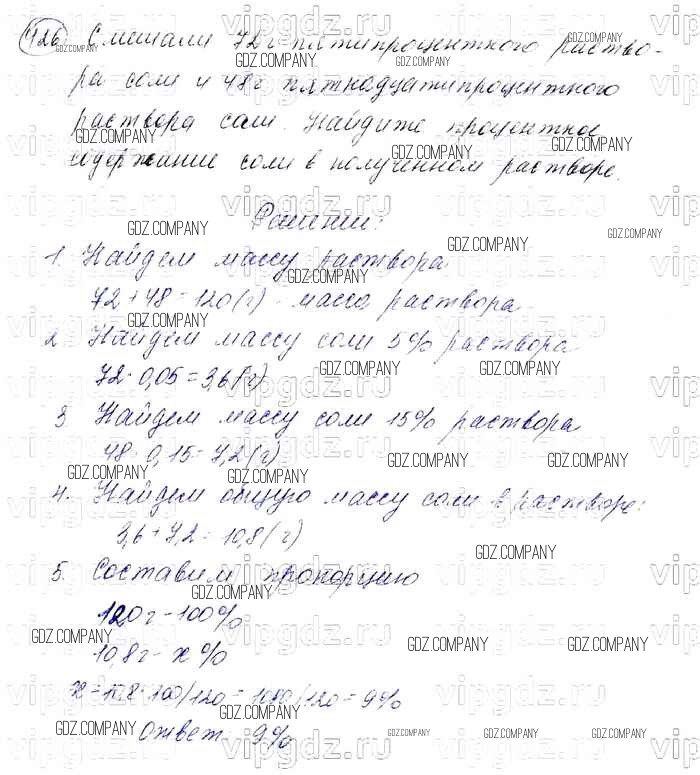 426 Смешали 72 г пятипроцентного раство-
ра соли и 48 г пятнадцатипроцентного
раствора соли. Найдите процентное
содержание соли в полученном растворе.
Решение:
1 Найдем массу раствора
72 + 48 = 120 (г) - масса раствора
2 Найдем массу соли 5% раствора
72 · 0,05 = 3,6 (г)
3 Найдем массу соли 15% раствора
48 · 0,15 = 7,2 (г)
4. Найдем общую массу соли в растворе:
3,6 + 7,2 = 10,8 (г)
5. Составим пропорцию
120 г - 100%
10,8 г - x %
x = 10,8 · 100/120 = 1080/120 = 9%
Ответ 9%
GDZ.COMPANY
vipgdz.ru